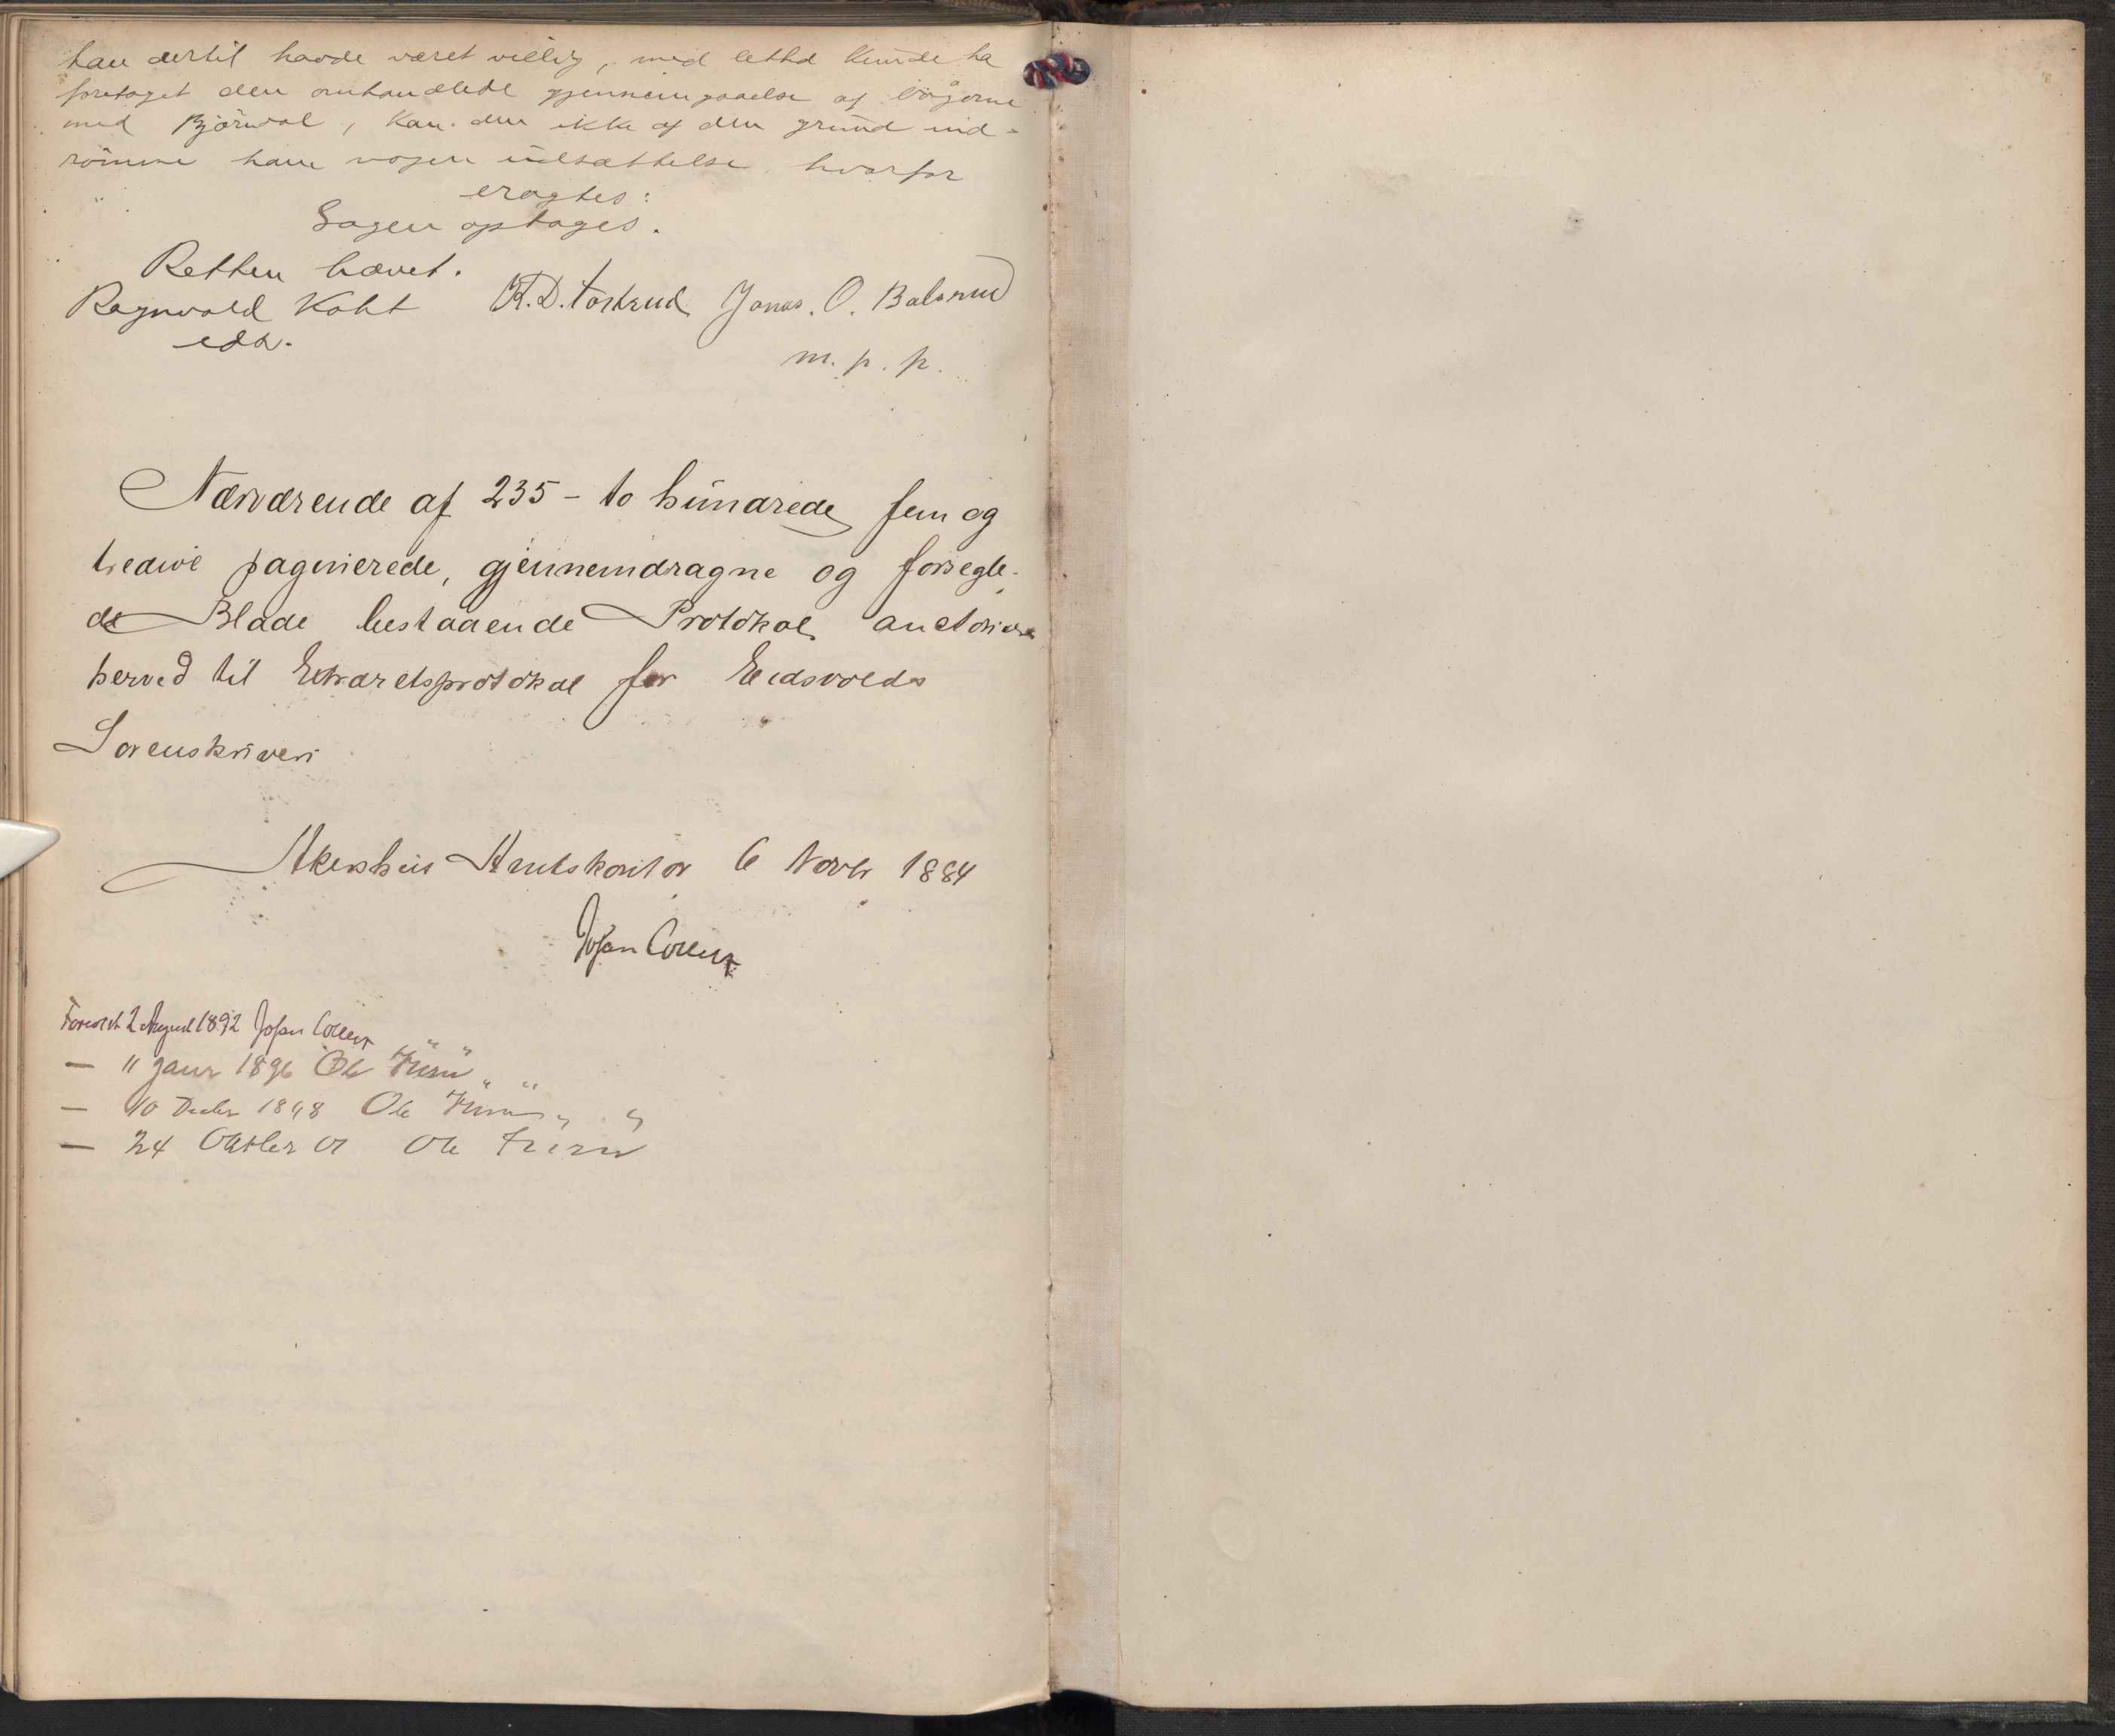 han dertil havde været villig, med lethed kunde ha
foretaget den omhandlede gjennemgaaelse af bøgerne
med Bjørwal, kan der ikke af den grund ind-
rømme ham nogen udsættelse, hvorfor
eragtes:
Sagen optages.
Retten hævet.
Ragnvald Koht K. D. Tostrud Jonas. O. Balsrud
edv.
m. p. p.
Nærværende af 235 - to hundrede fem og
tredive paginerede, gjennemdragne og forsegle-
de Blade bestaaende Protokol auctoriseres
herved til Extraretsprotokol for Eidsvolds
Sorenskriveri
Akershus Amtskontor 6 Novbr 1884
Johan Collett
Forevist 2 August 1892 Johan Collett
— 11 Janr 1896 Ole Furu
— 10 Decbr 1898 Ole Furu
— 24 Oktbr 01 Ole Furu